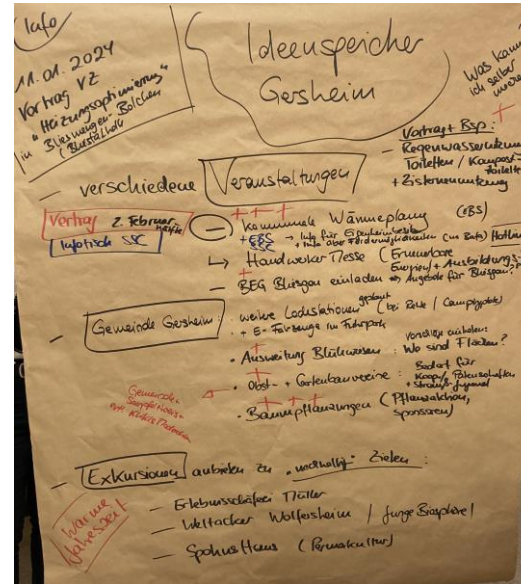 Info
11.01.2024
Vortrag VZ
"Heizungsoptimierung"
in Bliesmengen-Bolchen
(Bliestalhalle
Ideenspeicher
Gersheim
Was kann
ich selber
Vortrag + Bsp:
- Regenwassernutzung
Toiletten / Kompost-
toiletten
+ Zisternennutzung
- verschiedene Veranstaltungen
Vortrag 2. Februar-
hälfte
Infotisch SSC
- Kommunale Wärmeplanung (EBS)
+ EBS → Info für Eigenheimbesitzer
SSC + Info über Fördermöglichkeiten (von Bafa) Hotline
↳ Handwerker Messe (Erneuerbare
Energien / + Ausbildungs-
- BEG Bliesgau einladen ⇒ Angebote für Bliesgau?
- Gemeinde Gersheim: weitere Ladestationen geplant (bei Rewe / Campingplatz)
+ E-Fahrzeuge im Fuhrpark
• Ausweitung Blühwiesen: Wo sind Flächen?
Vorschläge einholen:
• Obst- + Gartenbauvereine: Bedarf für
Koop / Patenschaften
+ Streuobst
• Baumpflanzungen (Pflanzaktion,
sponsoren)
- Exkursionen anbieten zu "nachhaltig" Zielen:
warme
Jahreszeit
- Erlebnisschäferei Müller
- Weltacker Wolfersheim / Junge Biosphäre /
- SpohnsHaus (Permakultur)